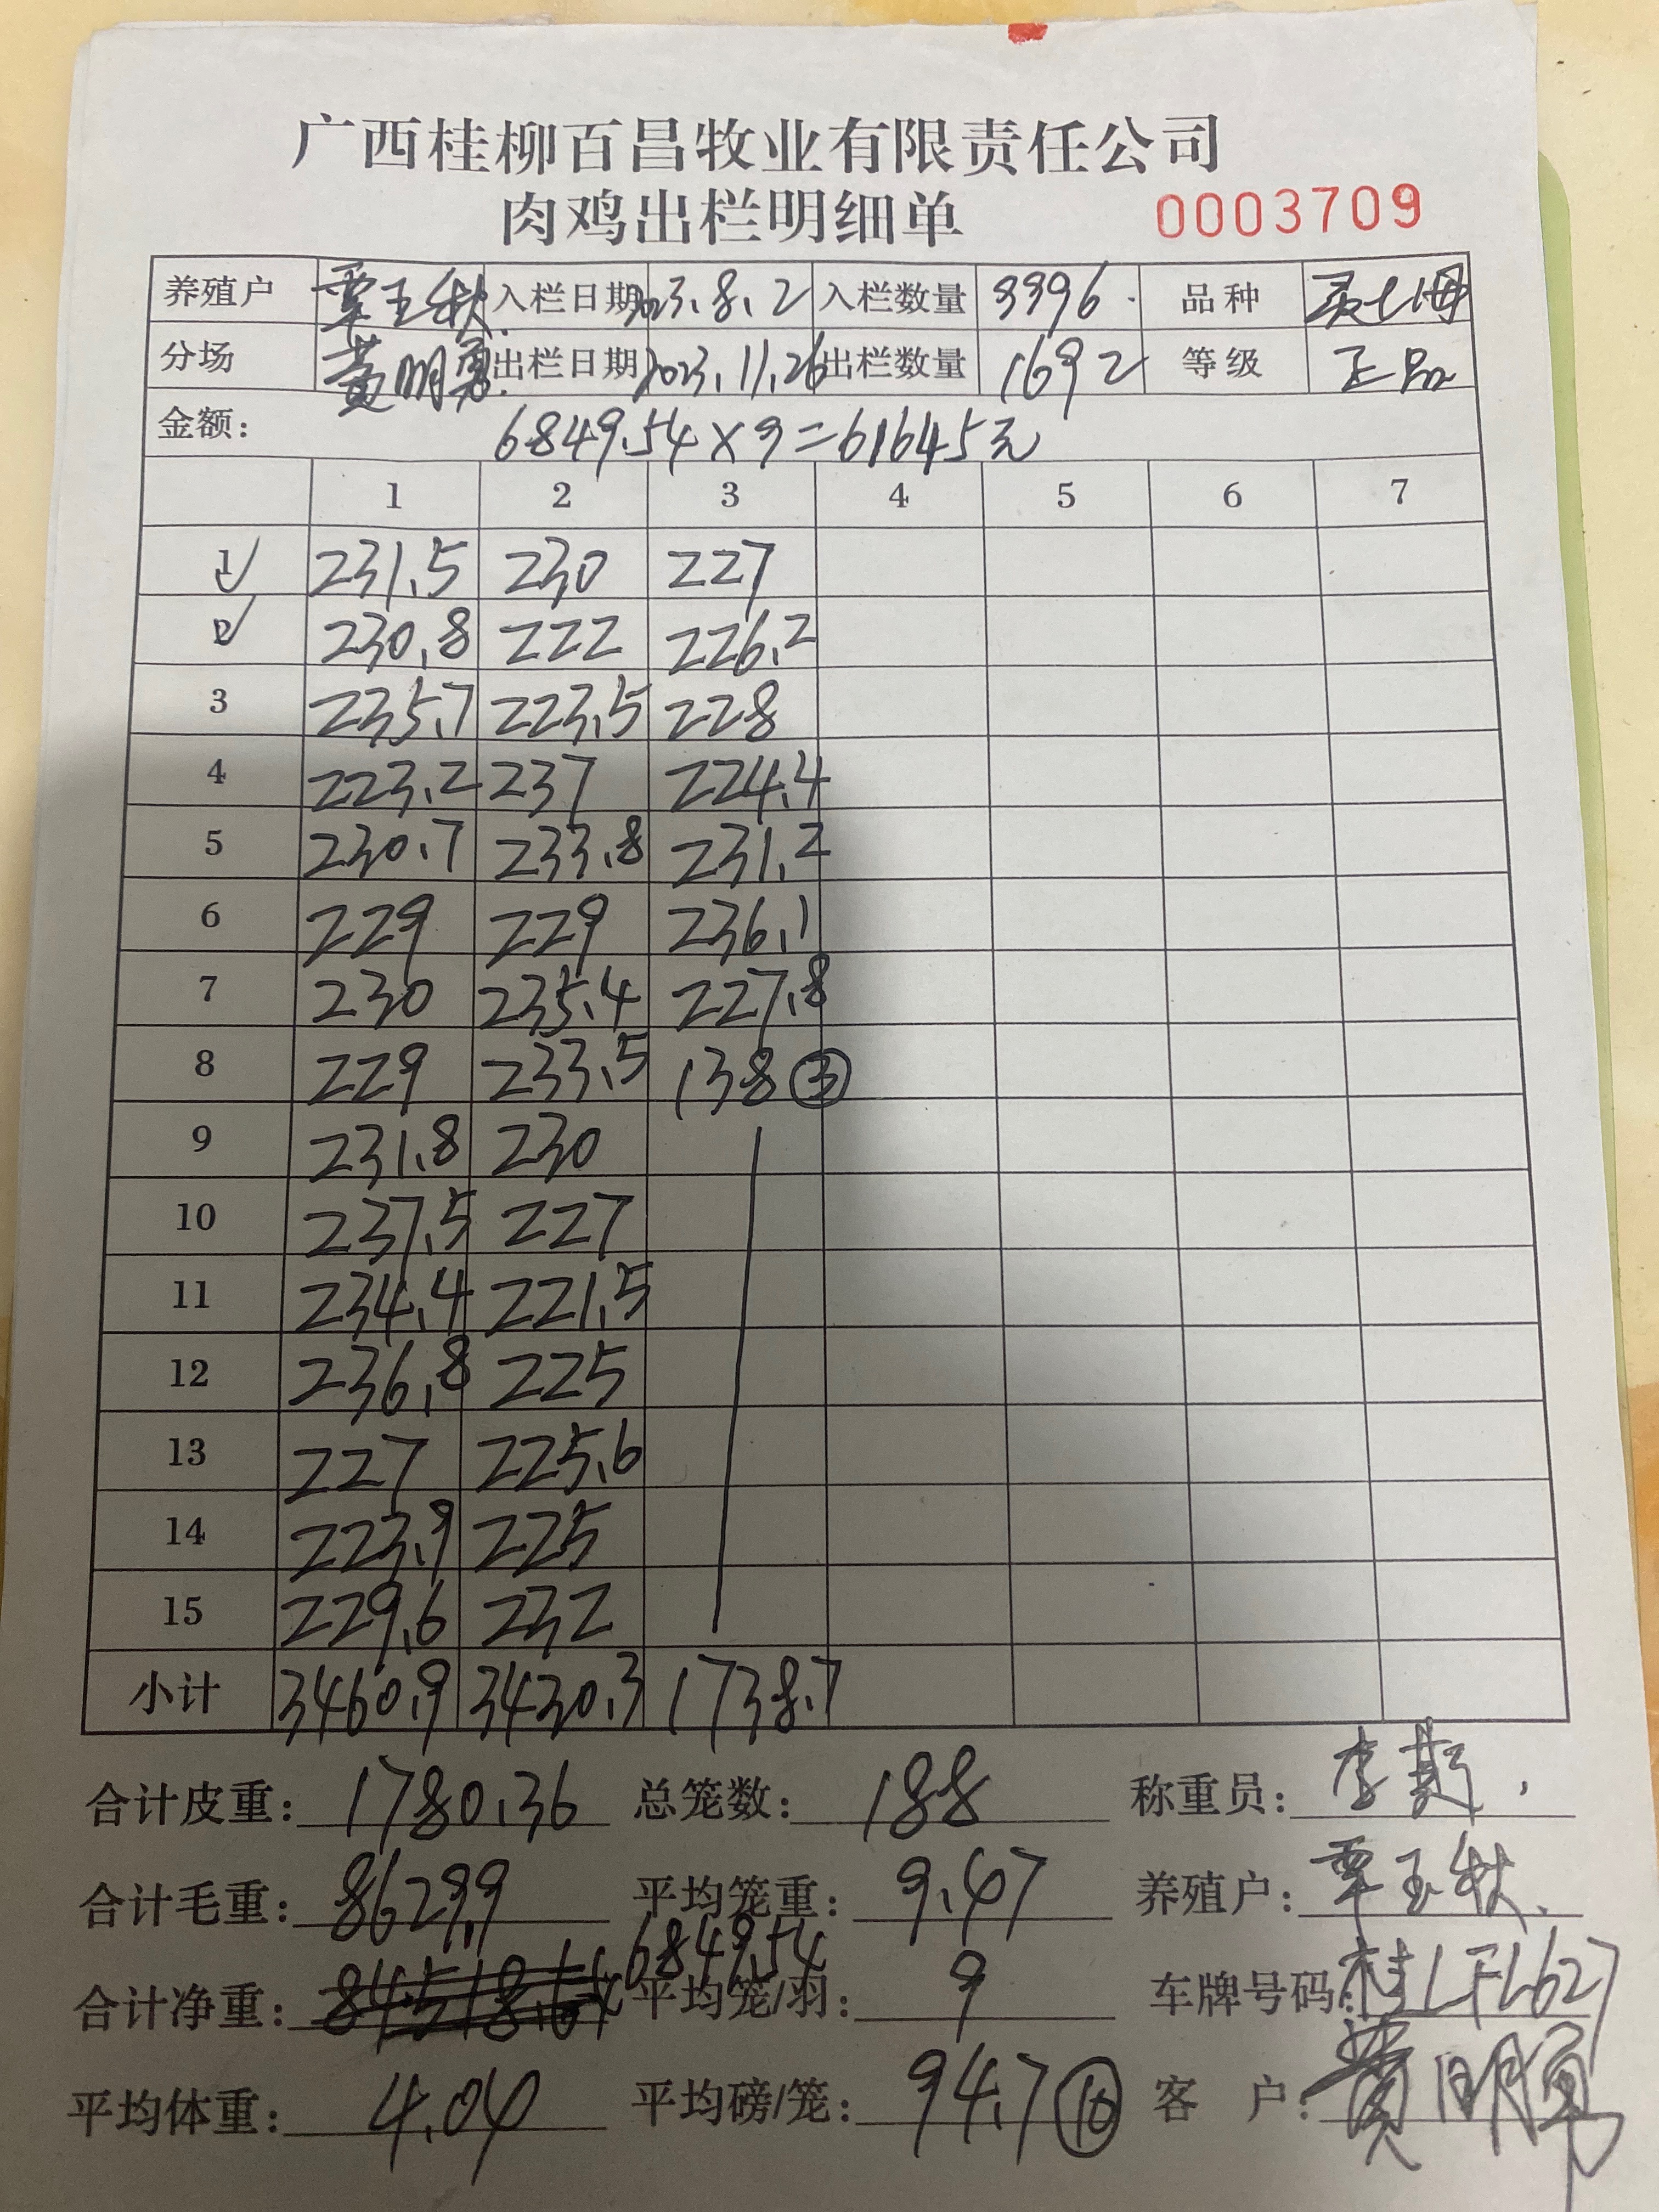 广西桂柳百昌牧业有限责任公司
肉鸡出栏明细单 0003709
养殖户 覃玉秋 入栏日期 2023.8.2 入栏数量 3396 品种
分场 黄明勇 出栏日期 2023.11.26 出栏数量 1692 等级 正品
金额: 6849.54×9=61645元
1 2 3 4 5 6 7
1 231.5 230 227
2 230.8 222 226.2
3 235.7 223.5 228
4 223.2 237 224.4
5 230.7 233.8 231.2
6 229 229 236.1
7 230 235.4 227.8
8 229 233.5 138③
9 231.8 230
10 237.5 227
11 234.4 221.5
12 236.8 225
13 227 225.6
14 223.9 225
15 229.6 232
小计 3460.9 3430.3 1738.7
合计皮重: 1780.36 总笼数: 188 称重员: 李
合计毛重: 8629.9 平均笼重: 9.47 养殖户: 覃玉秋
合计净重: 6849.54 平均笼/羽: 9 车牌号码: 桂LFL627
平均体重: 4.04 平均磅/笼: 94.7⑩ 客 户: 黄明勇